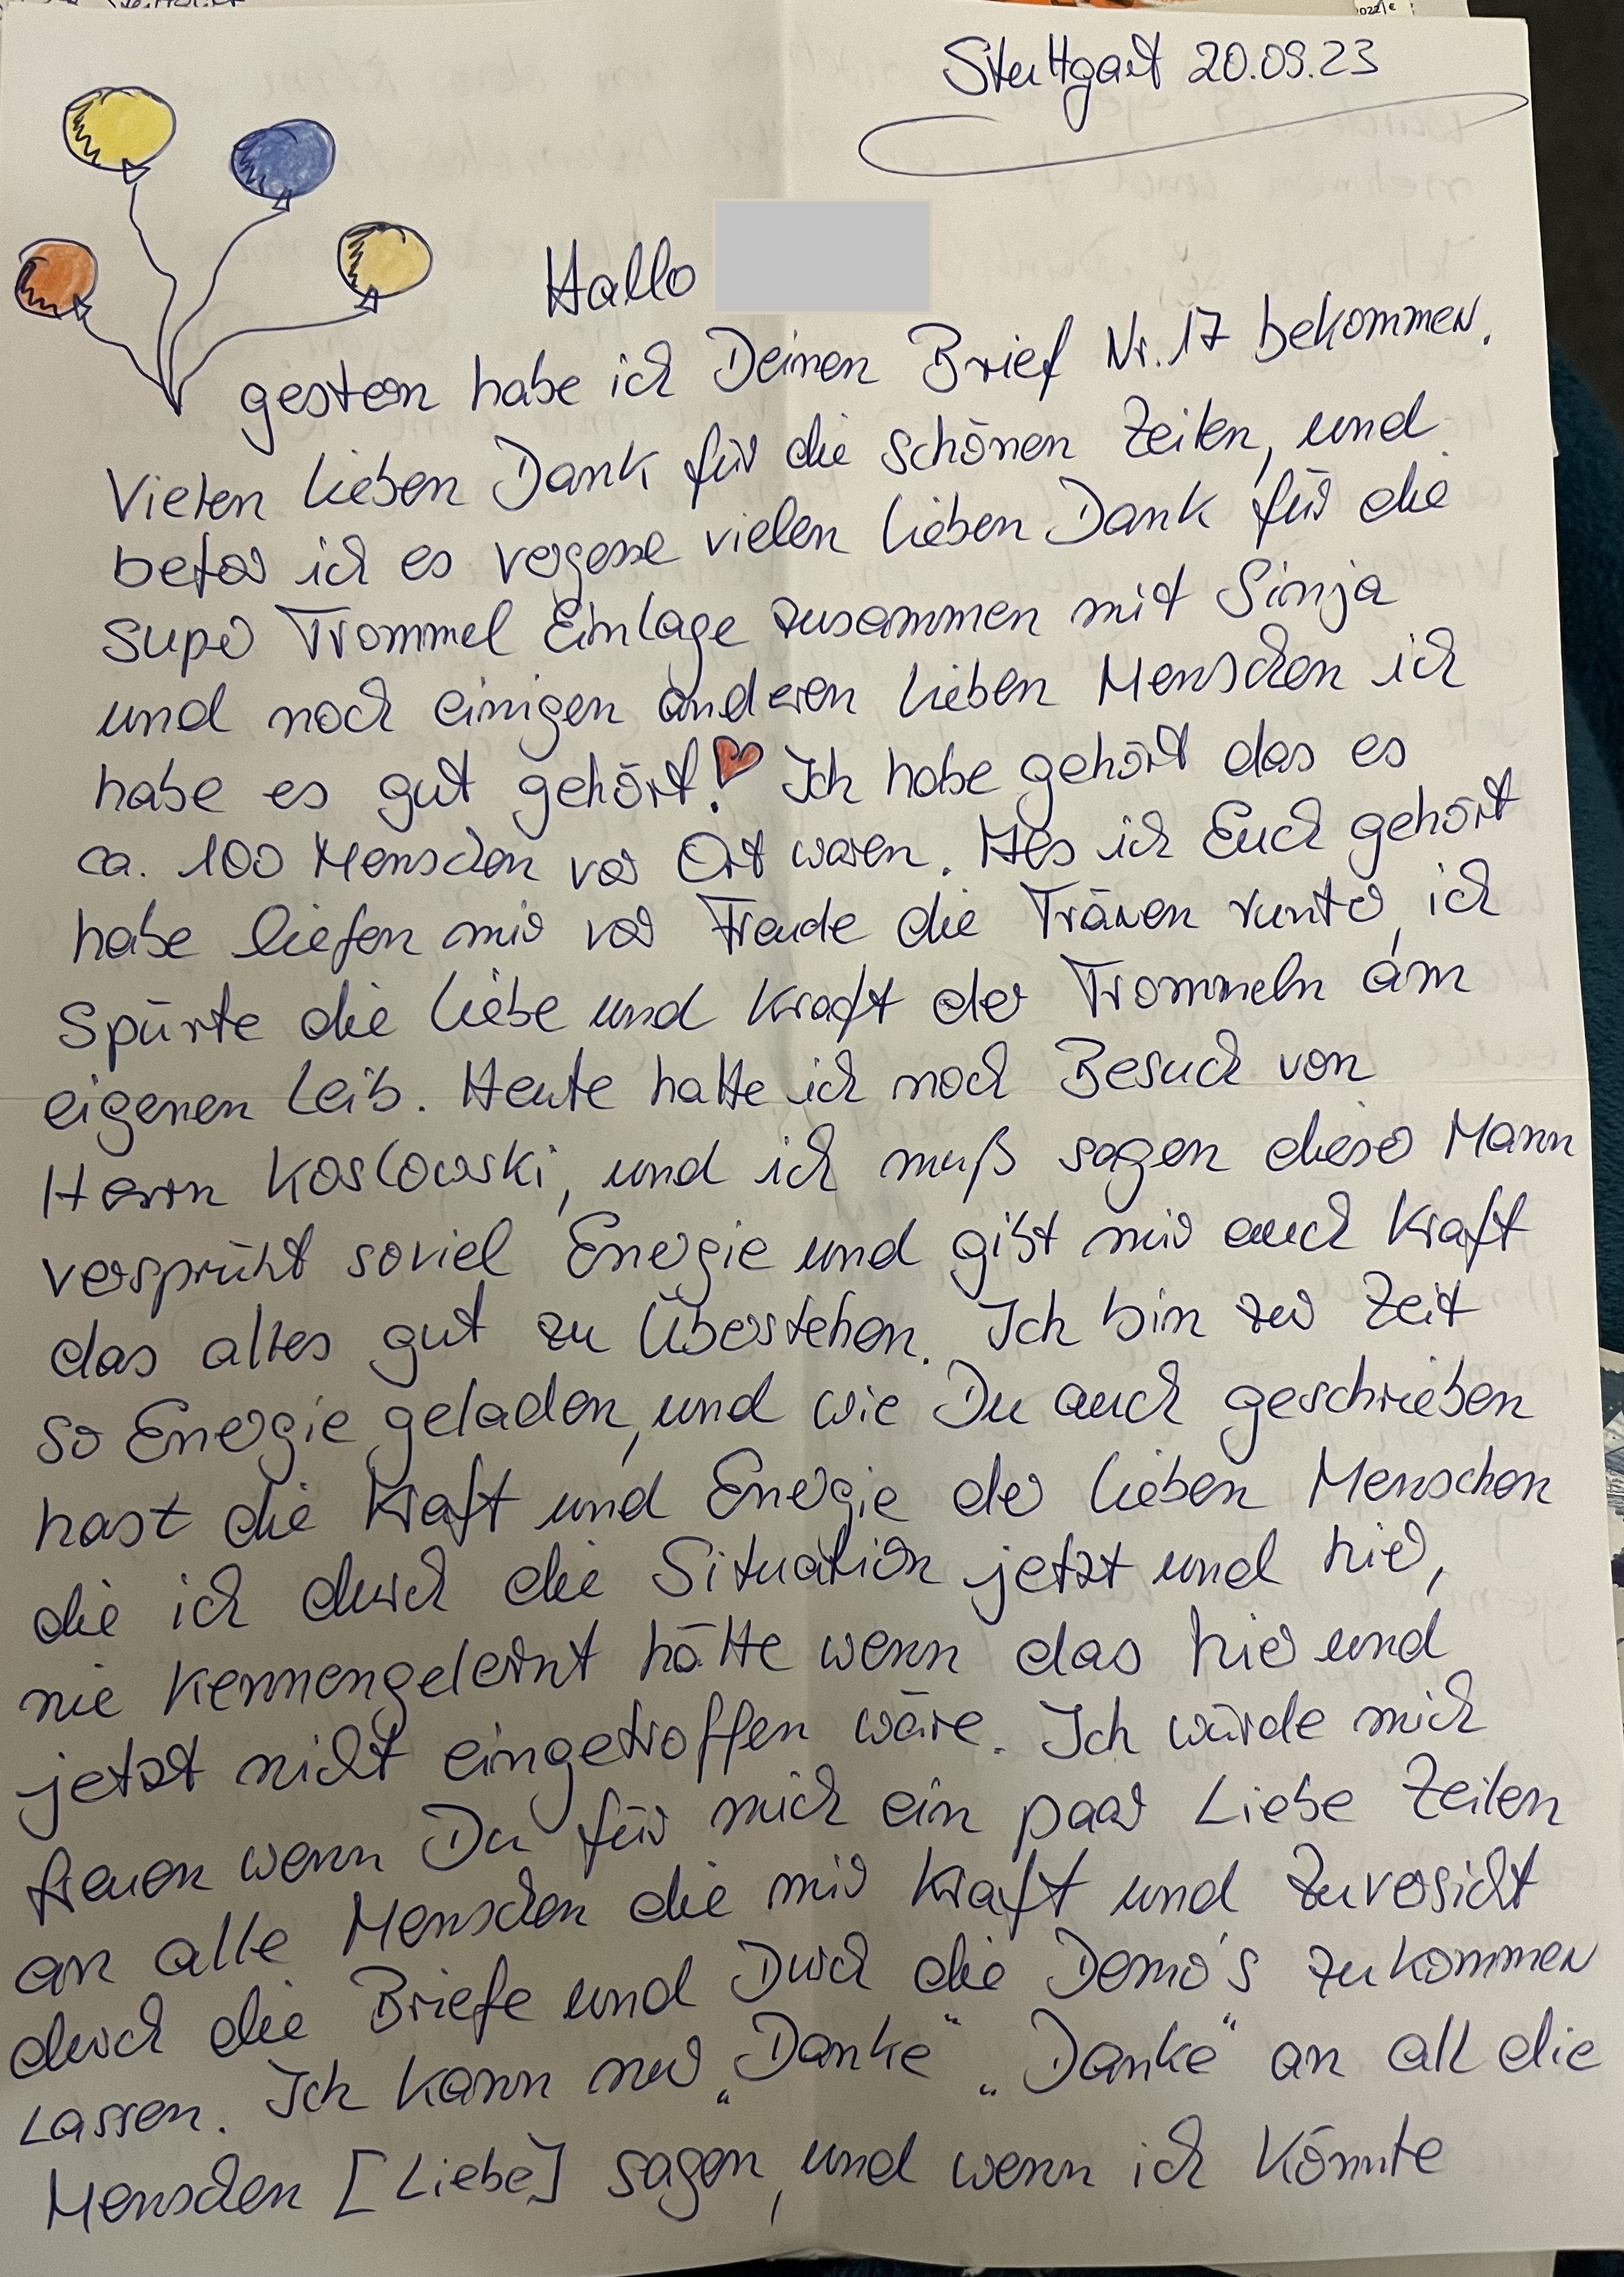 Stuttgart 20.09.23
Hallo
gestern habe ich Deinen Brief Nr. 17 bekommen.
Vielen lieben Dank für die schönen Zeilen, und
befor ich es vergesse vielen lieben Dank für die
super Trommel Einlage zusammen mit Sinja
und noch einigen anderen lieben Menschen ich
habe es gut gehört! Ich habe gehört das es
ca. 100 Menschen vor Ort waren. Als ich Euch gehört
habe liefen mir vor Freude die Tränen runter, ich
Spürte die Liebe und Kraft der Trommeln am
eigenen Leib. Heute hatte ich noch Besuch von
Herrn Koslowski, und ich muß sagen dieser Mann
versprüht soviel Energie und gibt mir auch Kraft
das alles gut zu Überstehen. Ich bin zur Zeit
so Energie geladen, und wie Du auch geschrieben
hast die Kraft und Energie der lieben Menschen
die ich durch die Situation jetzt und hier,
nie kennengelernt hätte wenn das hier und
jetzt nicht eingetroffen wäre. Ich würde mich
freuen wenn Du für mich ein paar Liebe Zeilen
an alle Menschen die mir Kraft und Zuversicht
durch die Briefe und Durch die Demo's zukommen
Lassen. Ich kann nur „Danke“ „Danke“ an all die
Menschen [Liebe] sagen, und wenn ich könnte